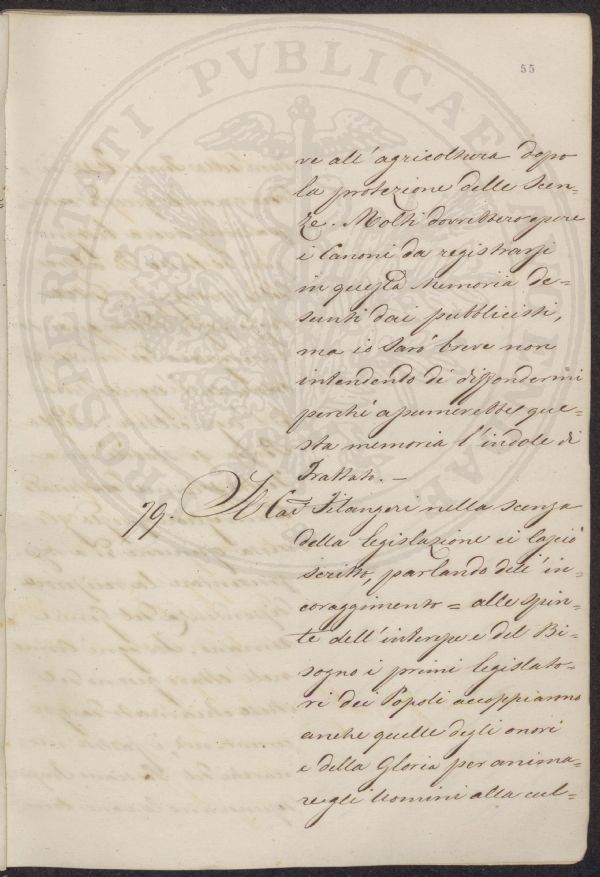 55
ve all' agricoltura dopo
la protezione delle Scen-
ze. Molti dovrebbero essere
i Canoni da registrarsi
in questa Memoria de=
sunti dai pubblicisti,
ma io Sarò breve non
intendendo di diffondermi
perchè assumerebbe que=
sta memoria l'indole di
Trattato. —
79. Il Filangeri nella scenza
della legislazione ci lasciò
scritto, parlando dell' in=
coraggimento = alle spin=
te dell' interesse e del Bi=
sogno i primi legislato=
ri dei Popoli accoppiarono
anche quelle degli onori
e della Gloria per anima=
re gli Uomini alla cul=
PROSPERITATI PVBLICAE